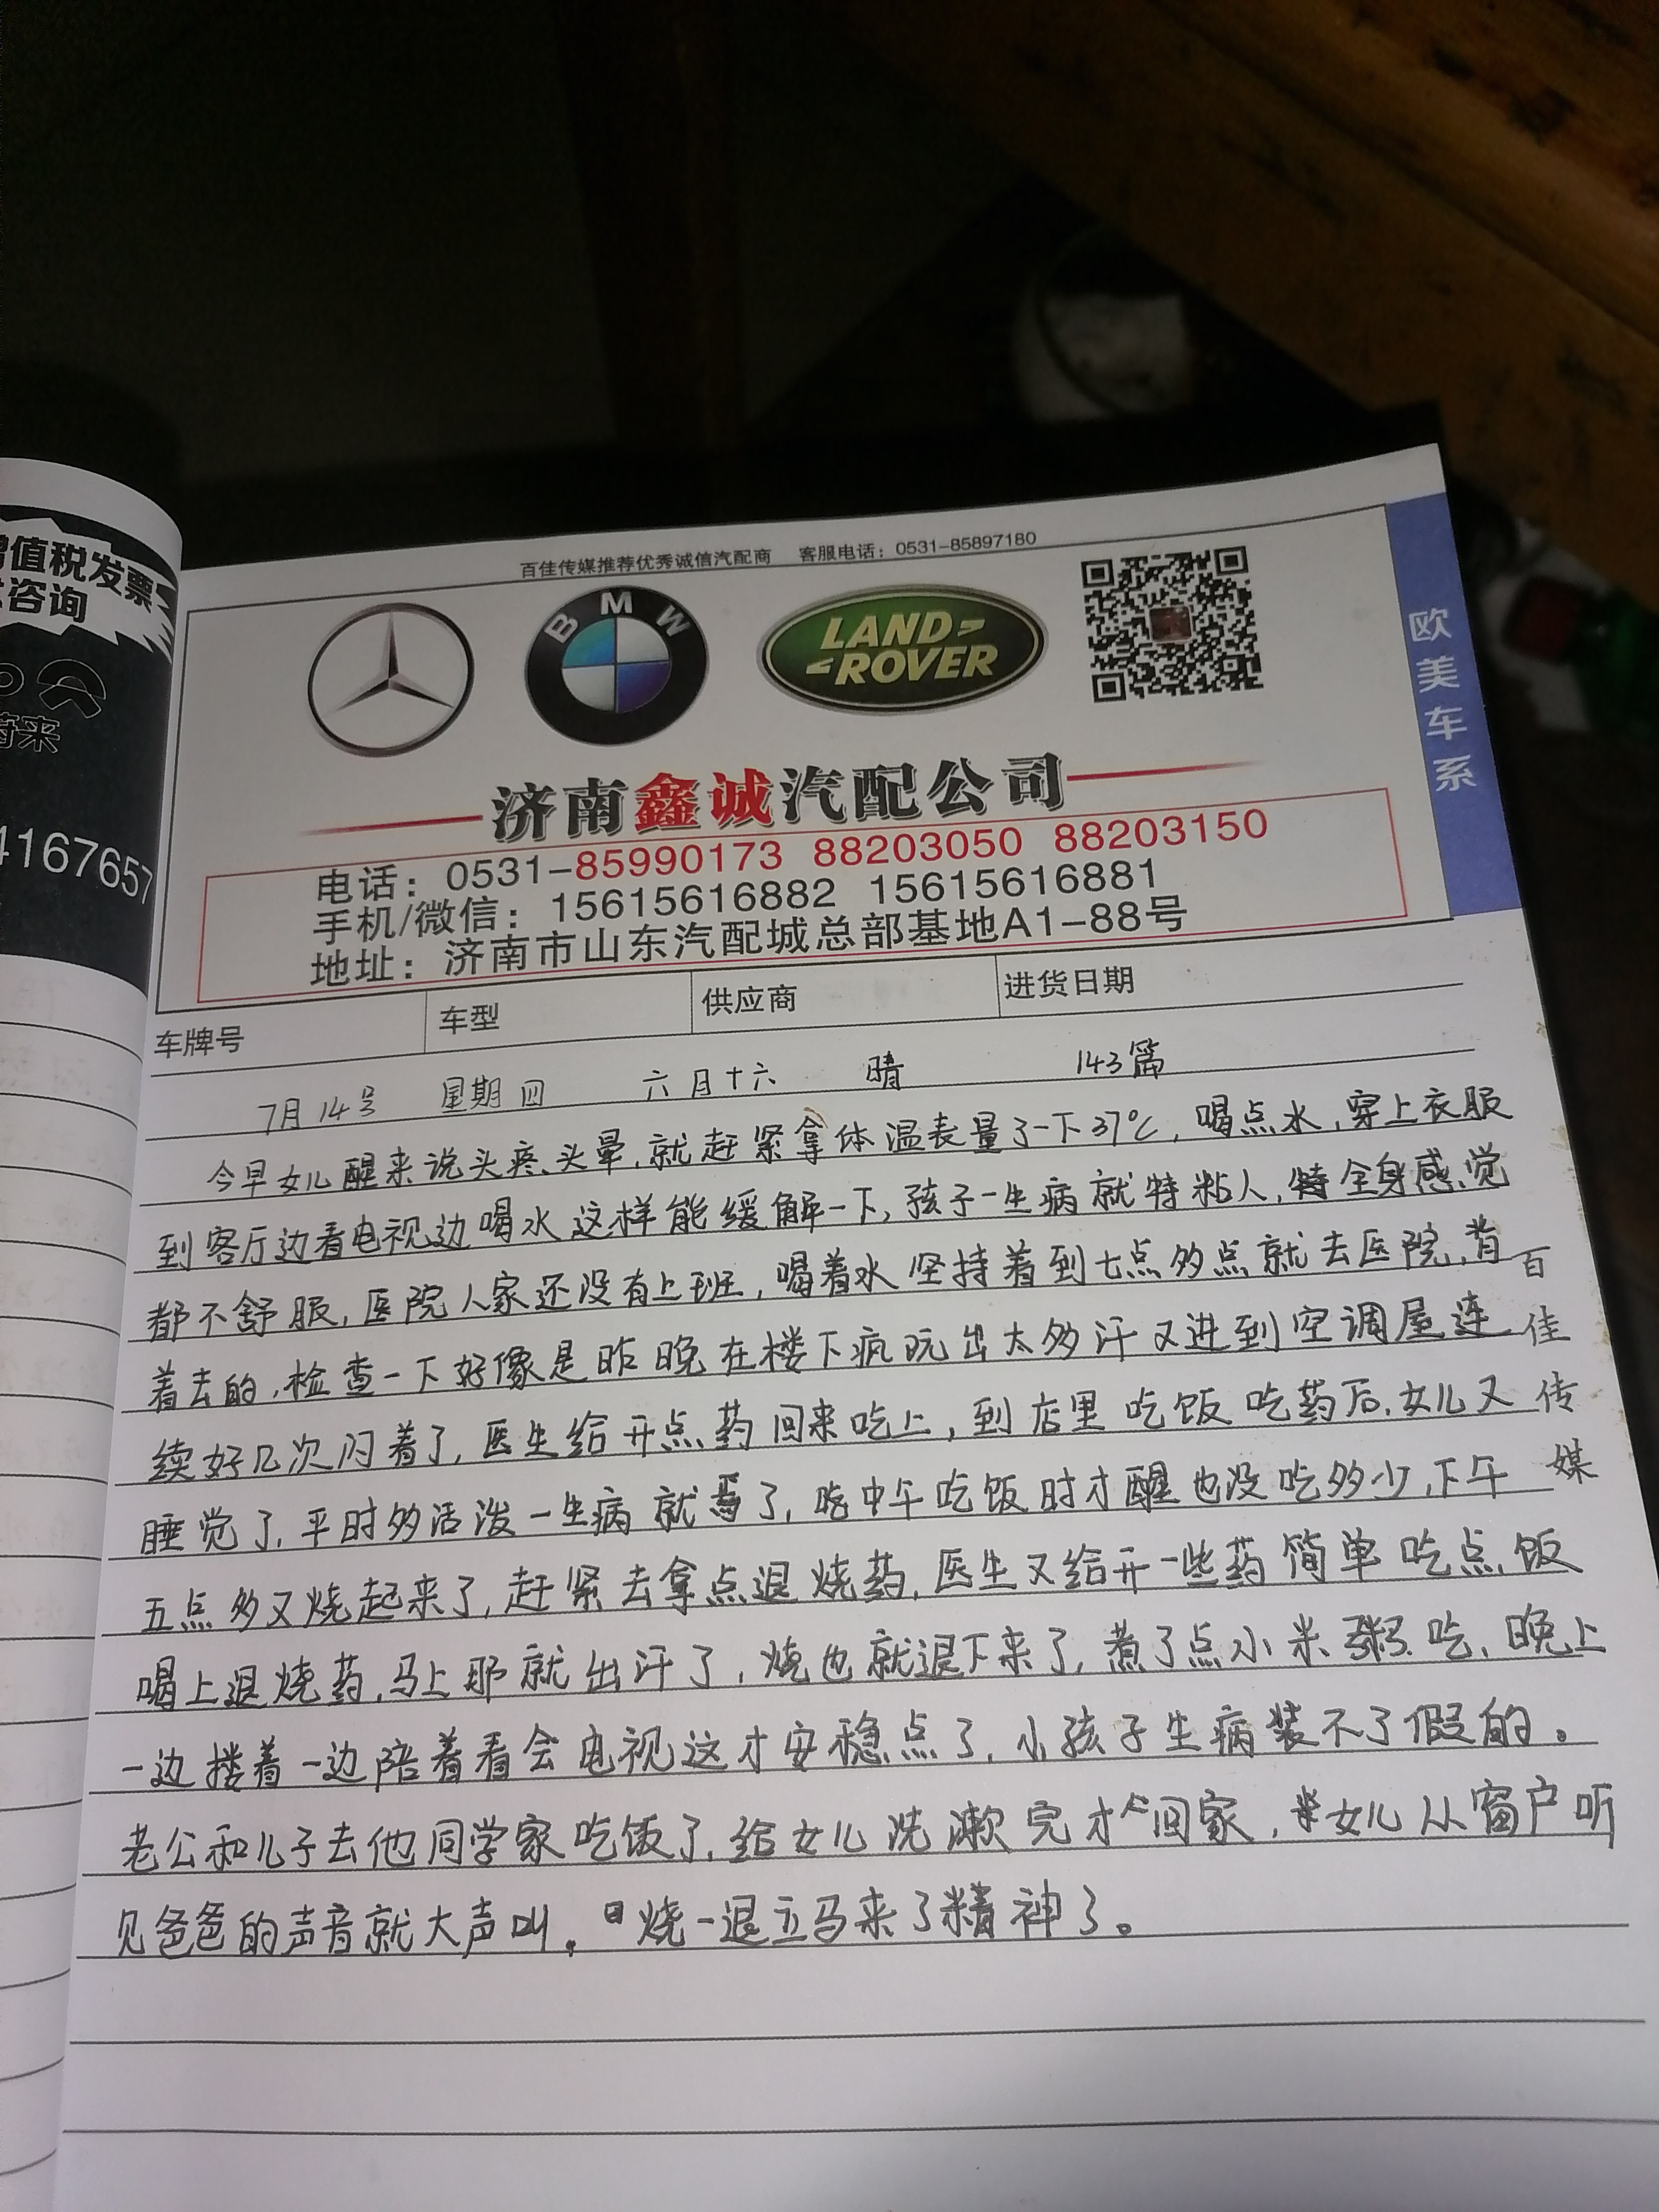 增值税发票
咨询
蔚来
4167657
百佳传媒推荐优秀诚信汽配商 客服电话：0531-85897180
BMW
LAND
ROVER
欧美车系
济南鑫诚汽配公司
电话：0531-85990173 88203050 88203150
手机/微信：15615616882 15615616881
地址：济南市山东汽配城总部基地A1-88号
车牌号 车型 供应商 进货日期
7月14号 星期四 六月十六 晴 143篇
今早女儿醒来说头疼、头晕，就赶紧拿体温表量了一下37℃，喝点水，穿上衣服
到客厅边看电视边喝水这样能缓解一下，孩子一生病就特粘人，全身感觉
都不舒服，医院人家还没有上班，喝着水坚持着到七点多点就去医院，背
着去的，检查一下好像是昨晚在楼下疯玩出太多汗又进到空调屋连
续好几次闪着了，医生给开点药回来吃上，到店里吃饭吃药后，女儿又
睡觉了，平时多活泼一生病就蔫了，吃中午吃饭时才醒也没吃多少，下午
五点多又烧起来了，赶紧去拿点退烧药，医生又给开一些药简单吃点饭
喝上退烧药，马上那就出汗了，烧也就退下来了，煮了点小米粥吃，晚上
一边搂着一边陪着看会电视这才安稳点了，小孩子生病装不了假的。
老公和儿子去他同学家吃饭了，给女儿洗漱完才回家，女儿从窗户听
见爸爸的声音就大声叫。烧一退立马来了精神了。
百佳传媒